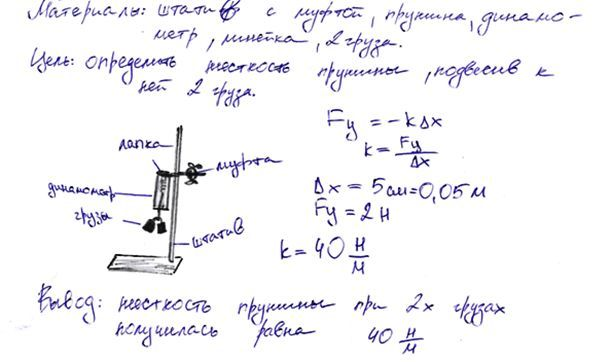 Материалы: штатив с муфтой, пружина, динамо-
метр, линейка, 2 груза.
Цель: определить жесткость пружины, подвесив к
ней 2 груза.
Fу = -kΔx
k = Fу/Δx
Δx = 5см = 0,05 м
Fу = 2 н
k = 40 н/м
лапка
муфта
динамометр
грузы
штатив
Вывод: жесткость пружины при 2х грузах
получилась равна 40 н/м